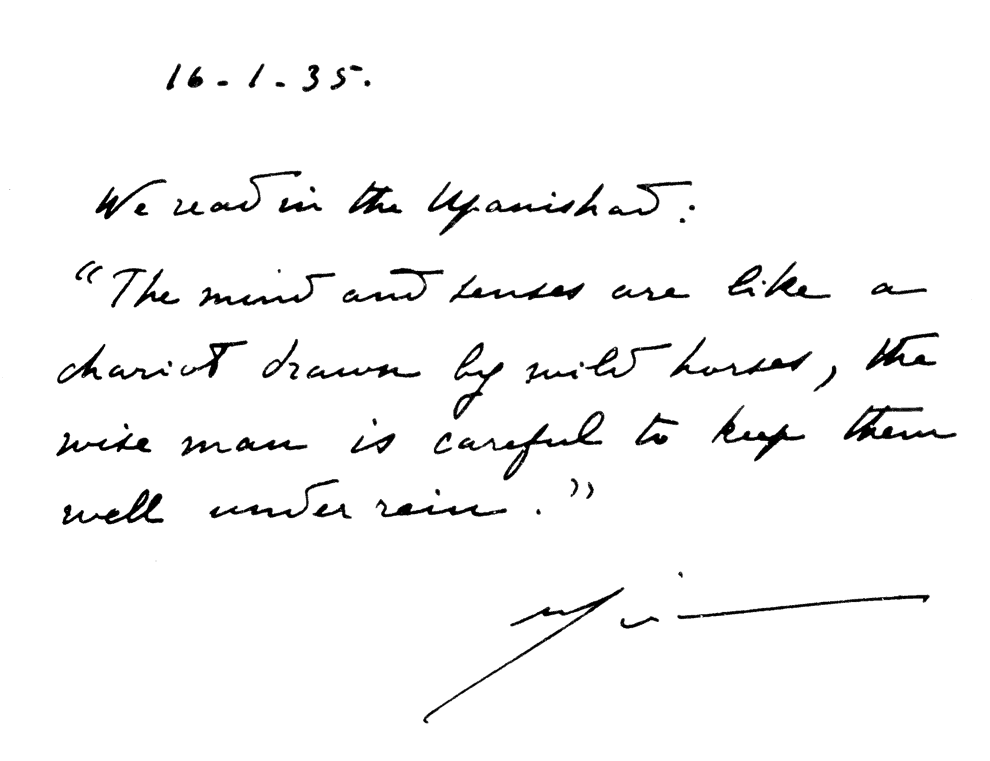 16-1-35.
We read in the Upanishad:
“The mind and senses are like a
chariot drawn by wild horses, the
wise man is careful to keep them
well under rein.”